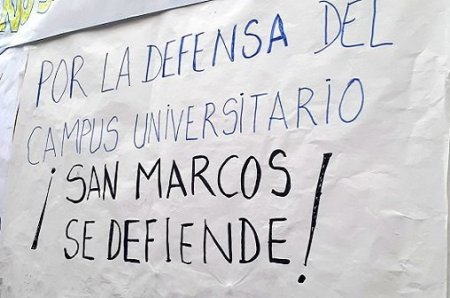 POR LA DEFENSA DEL
CAMPUS UNIVERSITARIO
¡SAN MARCOS
SE DEFIENDE!